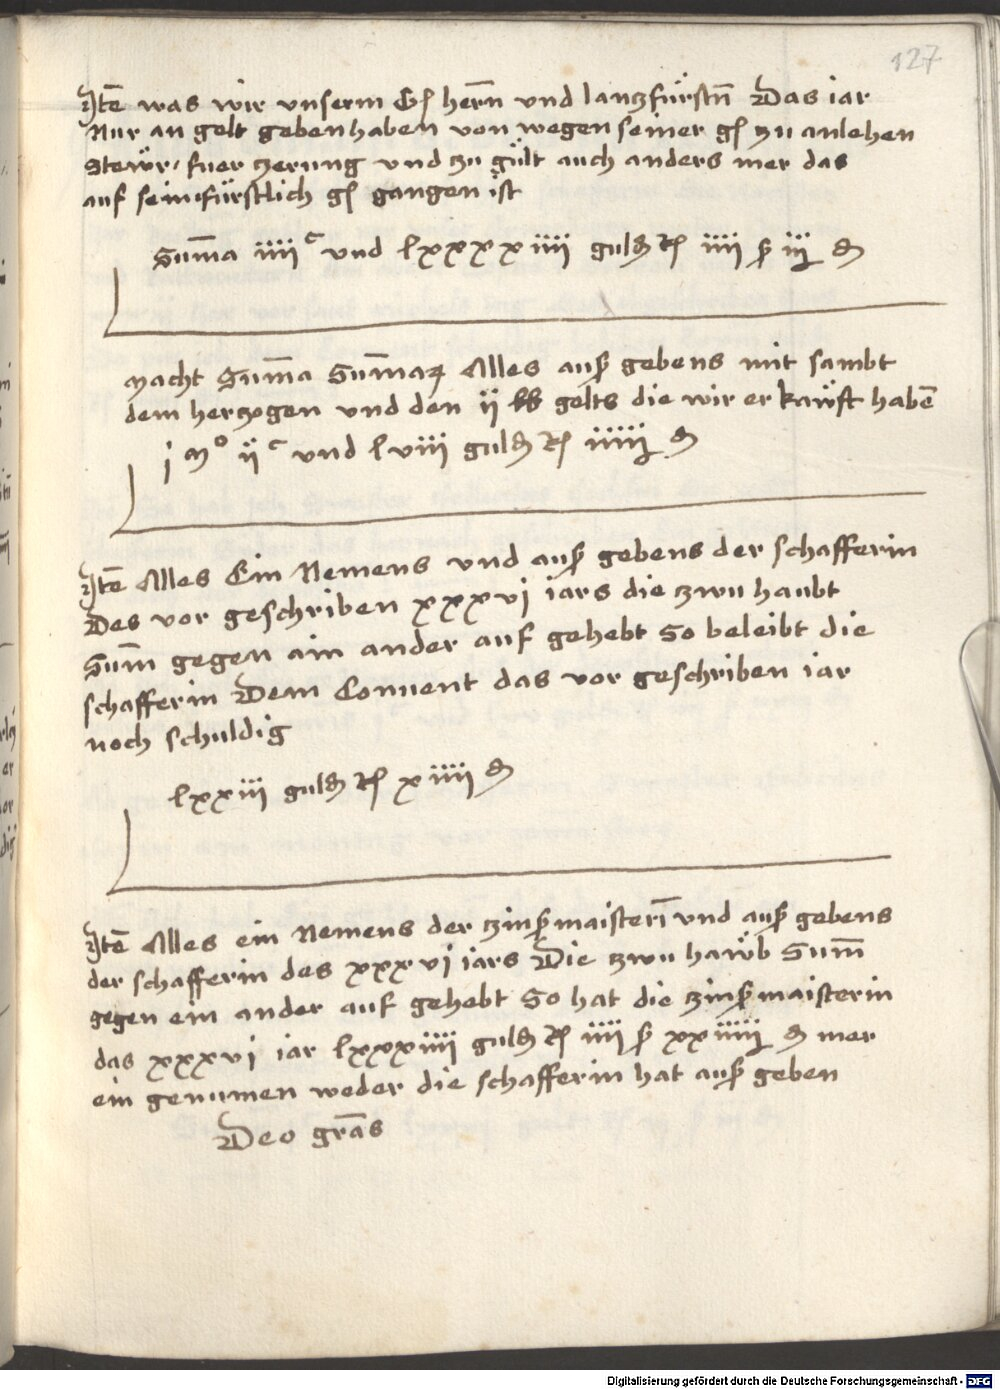 127
Jtē was wir vnserm G hern̄ vnd lantzfürstn̄ Das iar
Nur an gelt geben haben von wegen seiner g zu anlehen
Stewr / fuer zerung vnd zu gült auch anders mer das
auf sein fürstlich g gangen ist
Sum̄a iiii c vnd lxxxxiiii guld r iiii ß iij d
Macht Sum̄a Sum̄aꝝ Alles auß gebens mit sambt
dem herzogen vnd den ij lb gelts die wir erkawft habē
j Mo ij c vnd lviii guld r iiiij d
Jtē Alles Ein Nemens vnd auß gebens der schafferin
Des vor geschriben xxxvj iars die zwu haubt
Sum̄ gegen ain ander auf gehebt So beleibt die
schafferin Dem Conuent das vor geschriben iar
noch schuldig
lxxiii guld r xiiii d
Jtē Alles ein Nemens der zinßmaisterī vnd auß gebens
der schafferin des xxxvj iars Die zwu hawb Sum̄
gegen ein ander auf gehebt So hat die zinßmaisterin
das xxxvj iar lxxxiiii guld r iiii ß xxiiiij d mer
ein genumen weder die schafferin hat auß geben
Deo grās
Digitalisierung gefördert durch die Deutsche Forschungsgemeinschaft - DFG